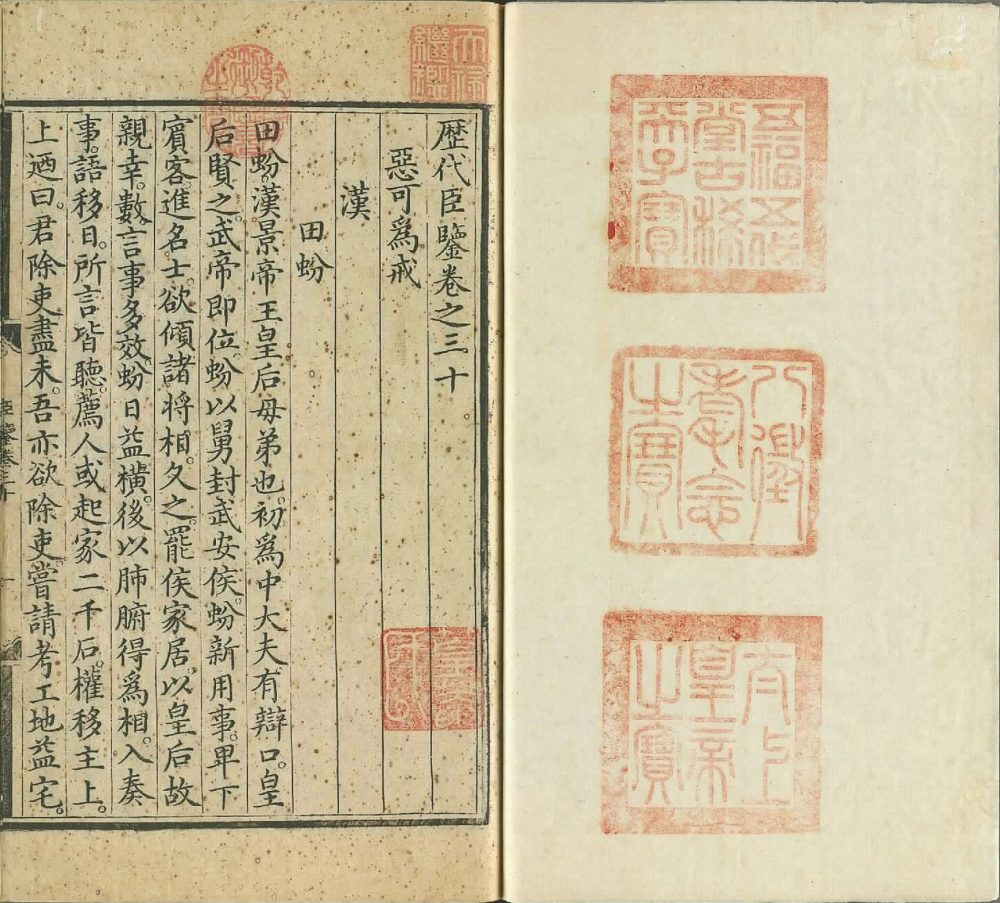 五福五代
堂古稀
天子寶
八徵
耄念
之寶
太上
皇帝
之寶
天祿
繼鑑
乾隆
御覽
之寶
歷代臣鑒卷之三十。
惡可爲戒
漢
田蚡
田蚡。漢景帝王皇后母弟也。初爲中大夫有辯口。皇
后賢之。武帝即位。蚡以舅封武安侯。蚡新用事。卑下
賓客進名士。欲傾諸將相。久之。罷侯家居。以皇后故
親幸。數言事多效。蚡日益橫。後以肺腑得爲相。入奏
事。語移日。所言皆聽。薦人或起家二千石。權移主上。
上迺曰。君除吏盡未。吾亦欲除吏。嘗請考工地益宅。